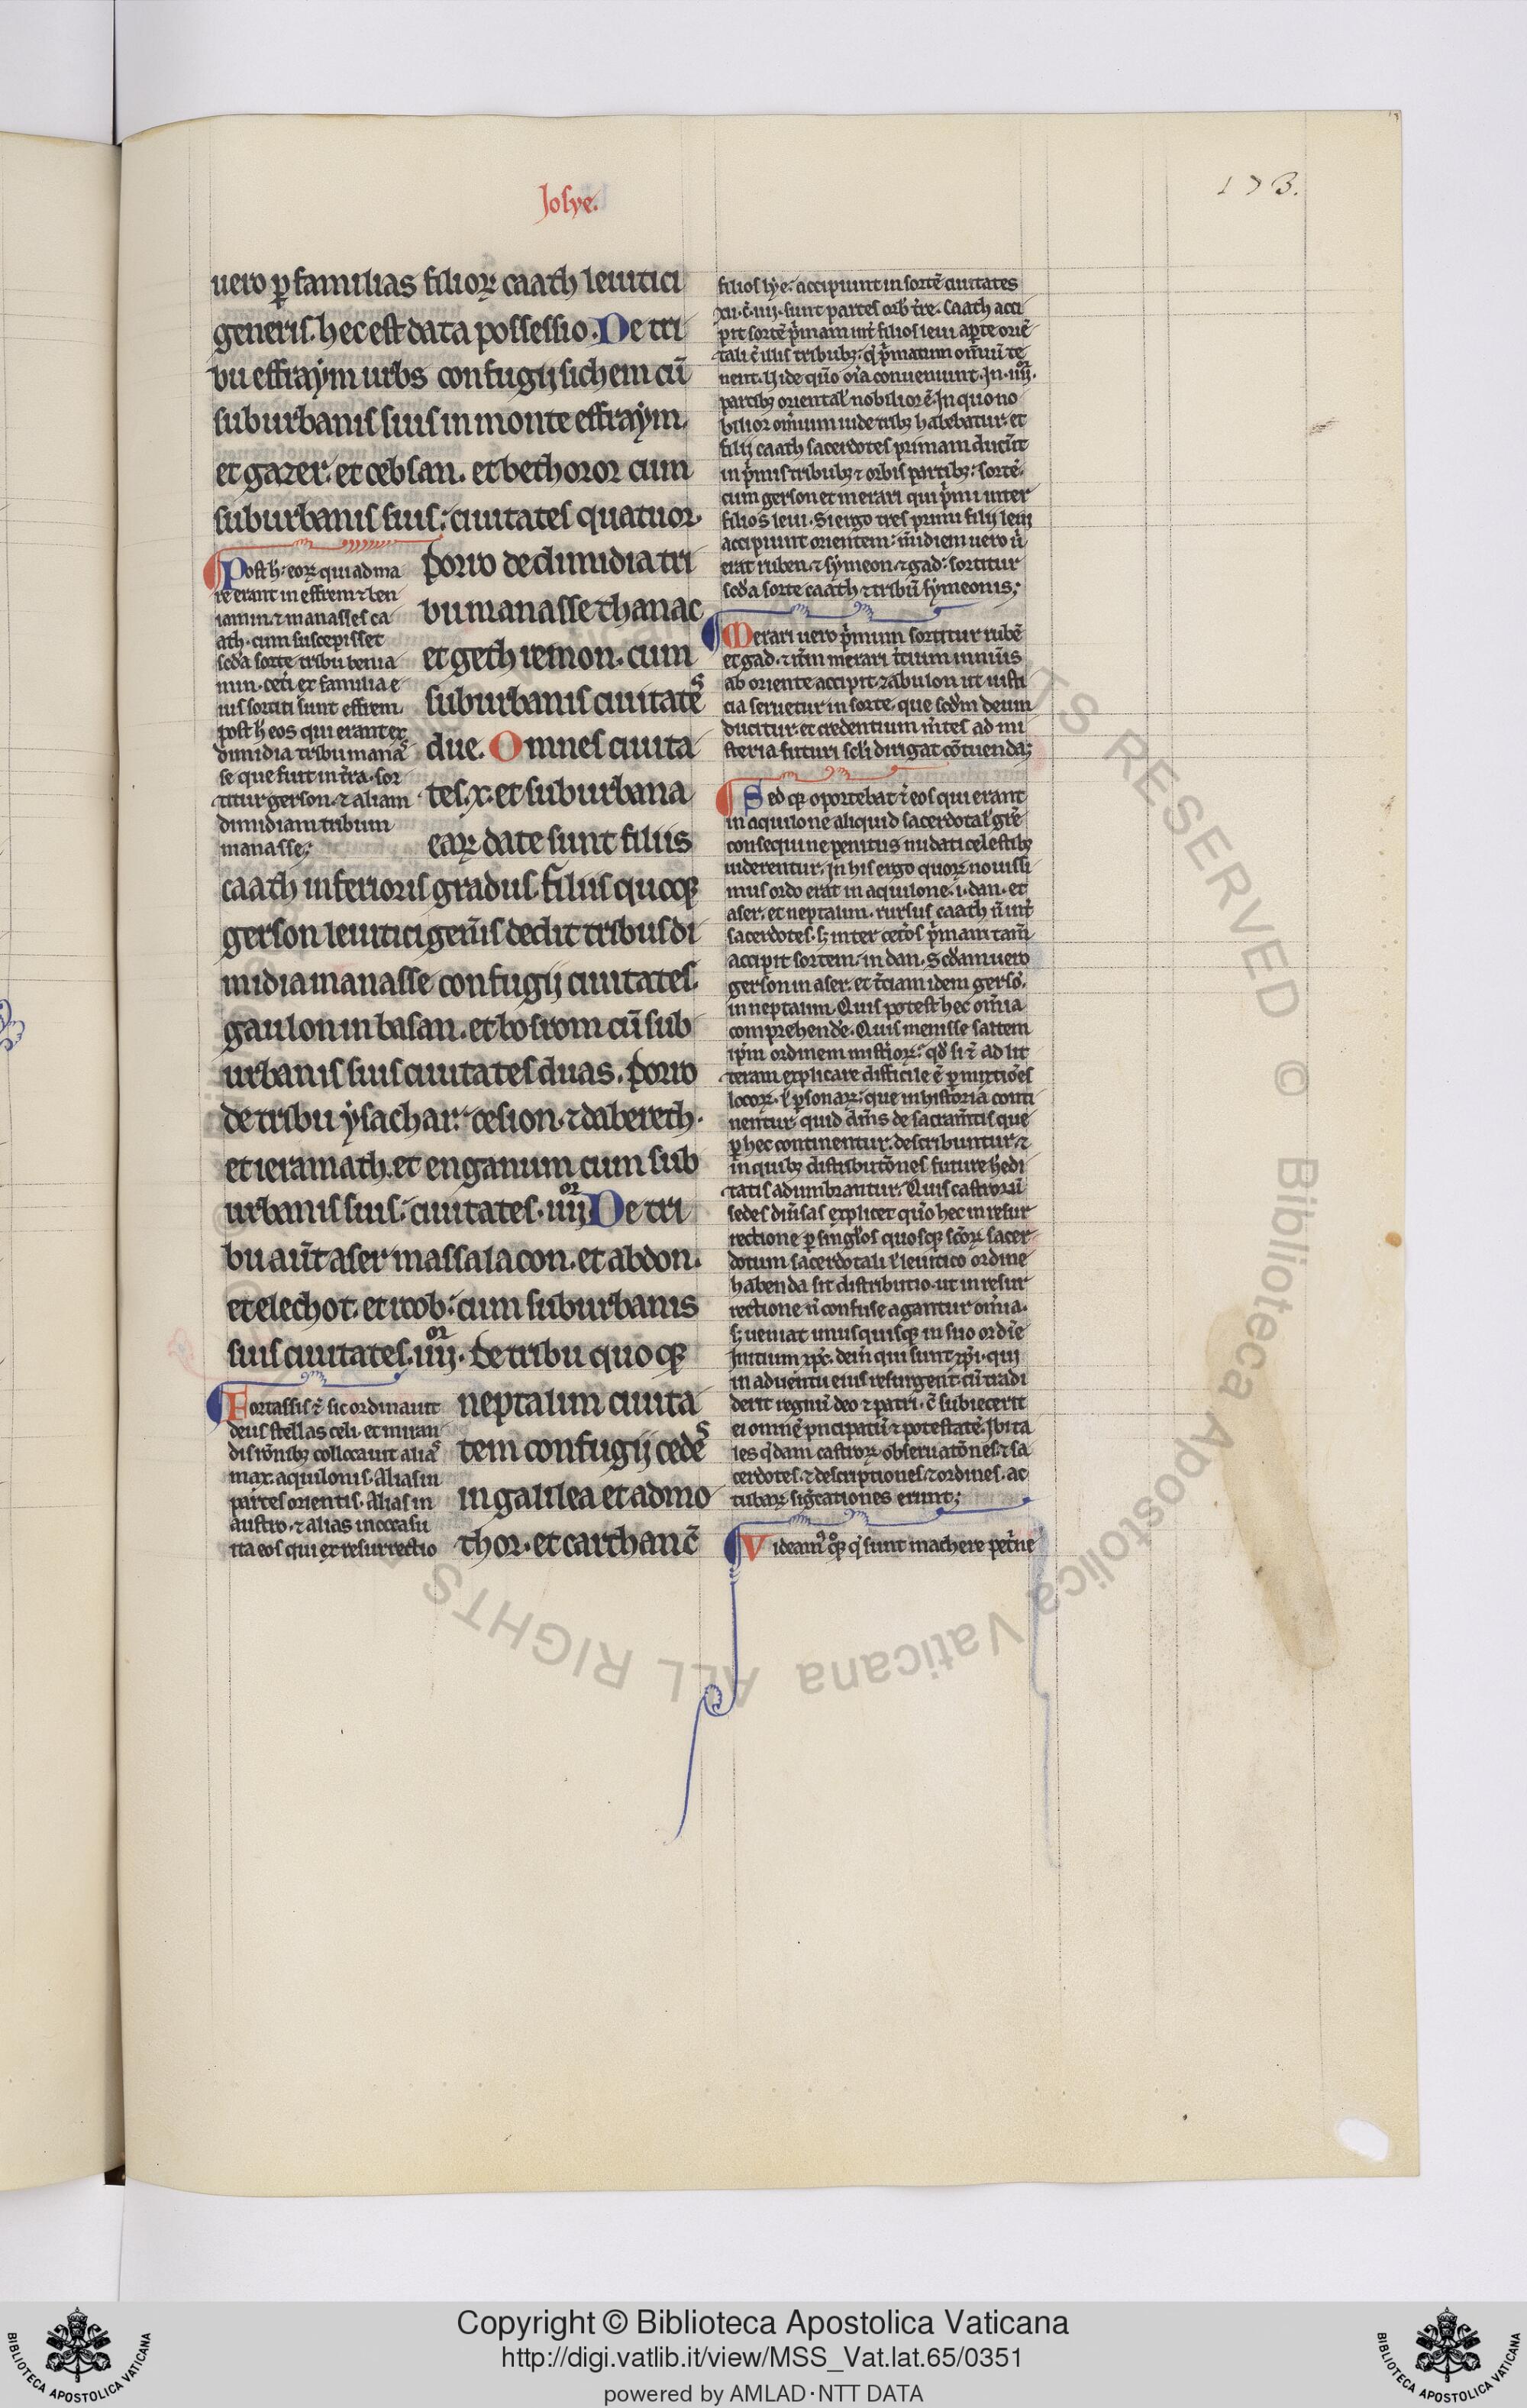 Josye.
173.
uero ꝑ familias filioꝝ caath leuitici
generis. hec est data possessio. De tri
bu effraym urbs confugij sichem cū
suburbanis suis in monte effraym.
et gazer. et cebsan. et bethoror cum
suburbanis suis: ciuitates quatuor.
porro de dimidia tri
bu manasse thanac
et geth remon. cum
suburbanis ciuitates
due. Omnes ciuita
tes. x. et suburbana
eaꝝ date sunt filiis
caath inferioris gradus. filiis quoqꝫ
gerson leuitici geñis dedit tribus di
midia manasse confugij ciuitates.
gaulon in basan. et bosrom cū sub
urbanis suis ciuitates duas. porro
de tribu ysachar: cesion. ⁊ dabereth.
et ieramath. et enganum cum sub
urbanis suis: ciuitates. iiijor De tri
bu aūt aser massala con. et abdon.
et elechot. et roob: cum suburbanis
suis ciuitates. iiijor. de tribu quoqꝫ
neptalim ciuita
tem confugij cedes
in galilea et admo
thor. et carthan c̄
Post h̓: eoꝝ qui ad ma
re erant in effrem ⁊ ben
iamin. ⁊ manasses ca
ath. cum suscepisset
scd̓a sorte tribu benia
min. cet̓i ex familia e
ius sortiti sunt effrem.
post h̓ eos qui erant ex
dimidia tribu manas
se que fuit int̓ra. sor
titur gerson. ⁊ aliam
dimidiam tribum
manasse;
Fortassis ⁊̄ sic ordinauit
deus stellas celi. et miran
dis rōnibꝫ collocauit alias
max. aquilonis. Alias in
partes orientis. Alias in
austro. ⁊ alias in occasu
ita eos qui ex resurrectio
filios lye: accipiunt in sortē ciuitates
xii. c̄. iiij. sunt partes orb̓ t̓re. Caath acci
pit sortē p̓mam int̓ filios leui a parte oriē
tali ē illis tribubꝫ: q̓ p̓matum om̄iū te
nent. Hide quō oīa conueniunt. In. iiijor.
partibꝫ oriental̓ nobilior ē. In quo no
bilior om̄ium iude tribꝫ habebatur. et
filij caath sacerdotes primam ducūt
in p̓mis tribubꝫ ⁊ orbis partibꝫ: sortē.
cum gerson et merari qui p̓mi inter
filios leui. Si ergo tres primi filij leui
accipiunt orientem: m̓idiem uero ū
erat ruben. ⁊ symeon. ⁊ gad: sortitur
scd̓a sorte caath ⁊ tribū symeonis;
Merari uero p̓mum sortitur rubē
et gad. ⁊ it̓m merari t̓tium inuīis
ab oriente accipit zabulon ut iusti
cia seruetur in sorte. que scd̓m deum
ducitur. et credentium m̄tes ad mi
steria futuri scl̓i dirigat cōtuenda;
Sed qꝫ oportebat ⁊̄ eos qui erant
in aquilone aliquid sacerdotal̓ gr̄e
consequi ne penitus nudati celestibꝫ
uiderentur. In his ergo quoꝝ nouissi
mus ordo erat in aquilone. i. dan. et
aser. et neptalim. rursus caath ū int̓
sacerdotes. sꝫ inter cet̓os p̓mam tam̄
accipit sortem. in dan. Scd̓am uero
gerson in aser. et t̓ciam idem gersō.
in neptalim. Quis potest hec om̄ia
comprehendē. Quis menisse saltem
ip̄m ordinem mist̓ioꝝ: qd̓ si ⁊̄ ad lit
teram explicare difficile ē ꝑmixtiōes
locoꝝ. ł ꝑsonaꝝ: que in historia conti
nentur. quid dm̄s de sacram̄tis que
ꝑ hec continentur. describuntur. ⁊
in quibꝫ distributōnes future h̓edi
tatis adumbrantur. Quis castrorū
sedes diūsas explicet quō hec in resur
rectione ꝑ sing̓los quosqꝫ sc̄oꝝ sacer
dotum sacerdotali ł leuitico ordine
habenda sit distributio. ut in resur
rectione ū confuse agantur om̄ia.
sꝫ ueniat unusquisqꝫ in suo ordīe
Initium xp̄c. dein̄ qui sunt xp̄i. qui
in aduentu eius resurgent. cū tradi
derit regnū deo ⁊ patri. c̄ subiecerit
ei omnē pncipatū ⁊ potestatē. Ibi ta
les q̓dam castroꝝ obseruatōnes. ⁊ sa
cerdotes. ⁊ descriptiones. ⁊ ordines. ac
tubaꝝ sig̓cationes erunt;
Videam̓ q̊qꝫ q̓ sunt machere pet̓ne
ALL RIGHTS RESERVED © Biblioteca Apostolica Vaticana
Copyright © Biblioteca Apostolica Vaticana
http://digi.vatlib.it/view/MSS_Vat.lat.65/0351
powered by AMLAD·NTT DATA
BIBLIOTECA APOSTOLICA VATICANA
BIBLIOTECA APOSTOLICA VATICANA